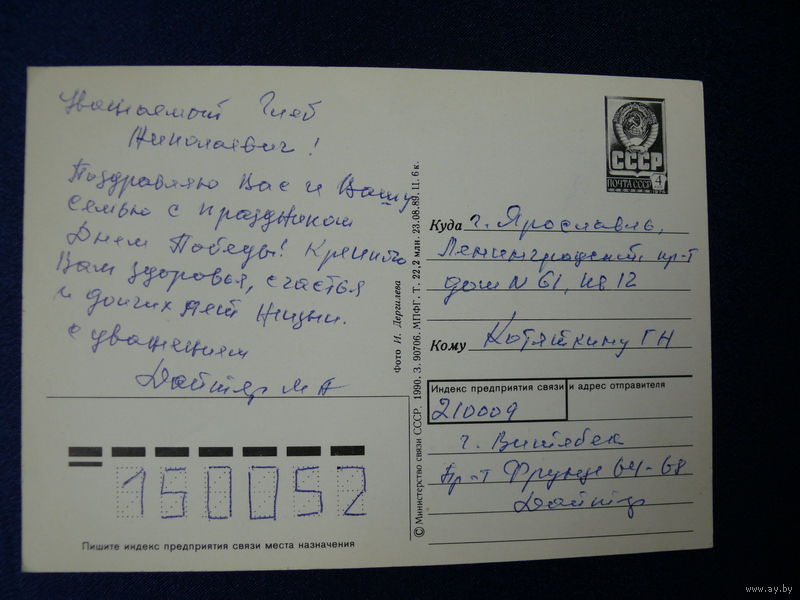 Уважаемый Глеб
Николаевич!
Поздравляю Вас и Вашу
семью с праздником
Днем Победы! Крепкого
Вам здоровья, счастья
и долгих лет жизни.
с уважением
Дойтер М А
150052
Пишите индекс предприятия связи места назначения
© Министерство связи СССР. 1990. З. 90706. МПФГ. Т. 22,2 млн. 23.08.89. Ц. 6 к.
Фото И. Дергилева
СССР
ПОЧТА СССР 4
Куда г. Ярославль,
Ленинградский пр-т
дом N 61, кв 12
Кому Котяткину ГН
Индекс предприятия связи и адрес отправителя
210009
г. Витебск
Пр-т Фрунзе 64-68
Дойтер
www.ay.by